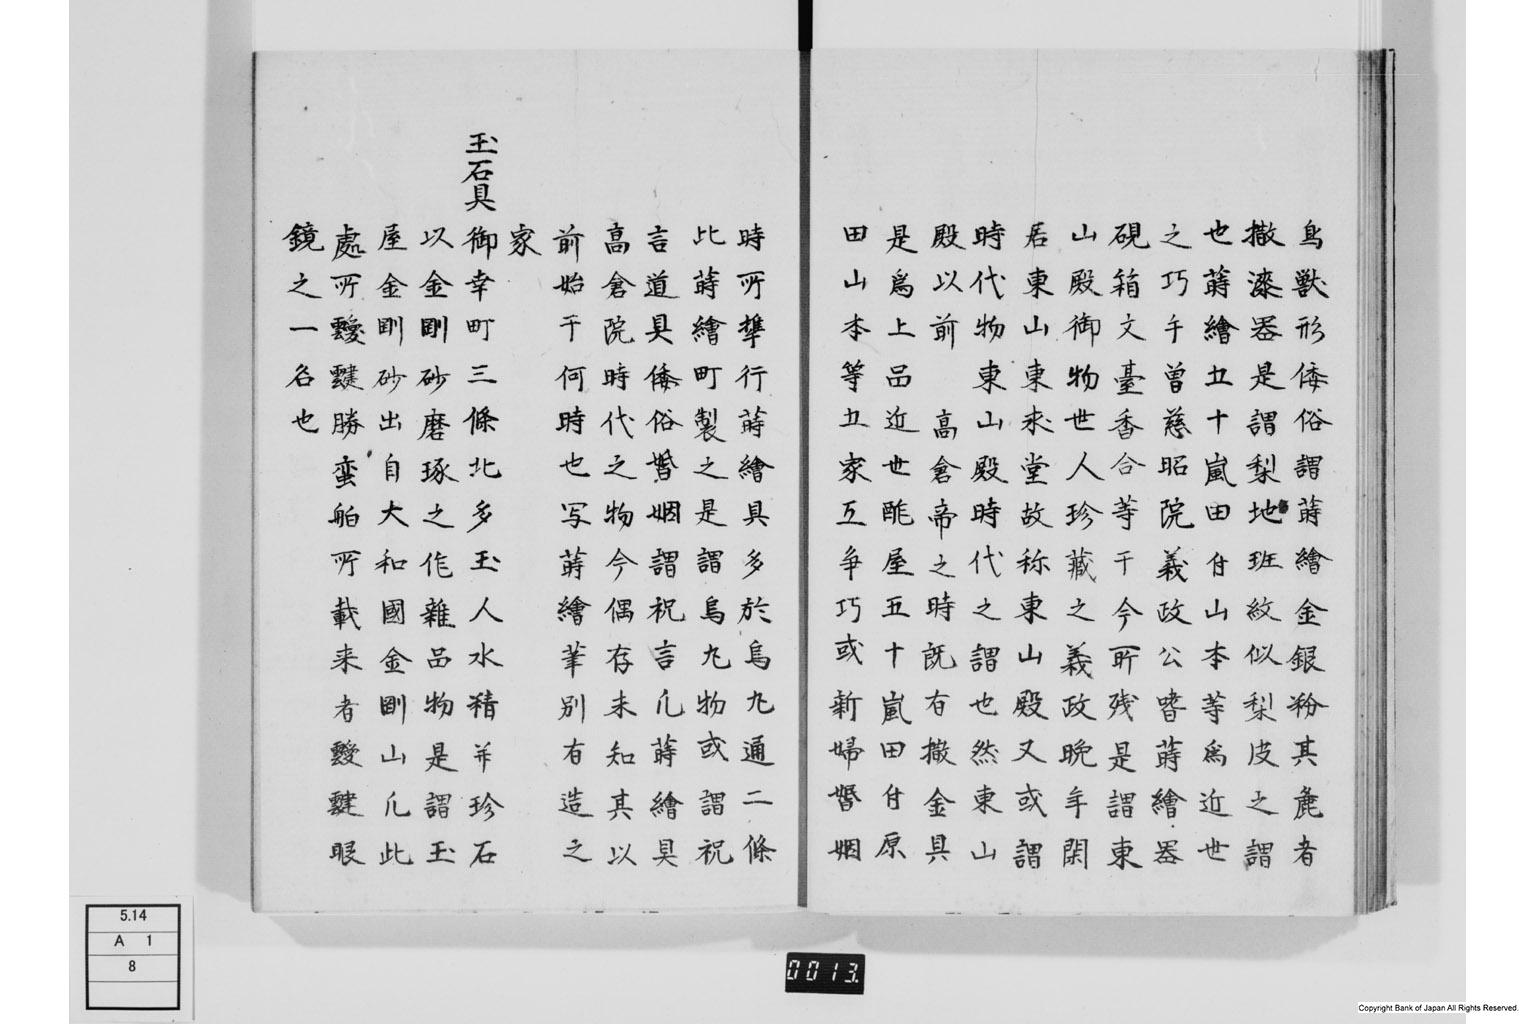 鳥獣形倭俗謂蒔繪金銀粉其麁者
撒漆器是謂梨地班紋似梨皮之謂
也蒔繪五十嵐田付山本等爲近世
之巧手曽慈昭院義政公嗜蒔繪器
硯箱文臺香合等于今所残是謂東
山殿御物世人珍藏之義政晩年閑
居東山東求堂故称東山殿又或謂
時代物東山殿時代之謂也然東山
殿以前 高倉帝之時既有撒金具
是爲上品近世酢屋五十嵐田付原
田山本等五家互争巧或新婦婚姻
時所挙行蒔繪具多於烏九通二條
比蒔繪町製之是謂烏九物或謂祝
言道具倭俗婚姻謂祝言凡蒔繪具
高倉院時代之物今偶存未知其以
前始于何時也写蒔繪筆别有造之
家
玉石具 御幸町三條北多玉人水精并珍石
以金剛砂磨琢之作雑品物是謂玉
屋金剛砂出自大和國金剛山凡此
處所靉靆勝蛮舶所載来者靉靆眼
鏡之一名也
5.14
A 1
8
0013.
Copyright Bank of Japan All Rights Reserved.